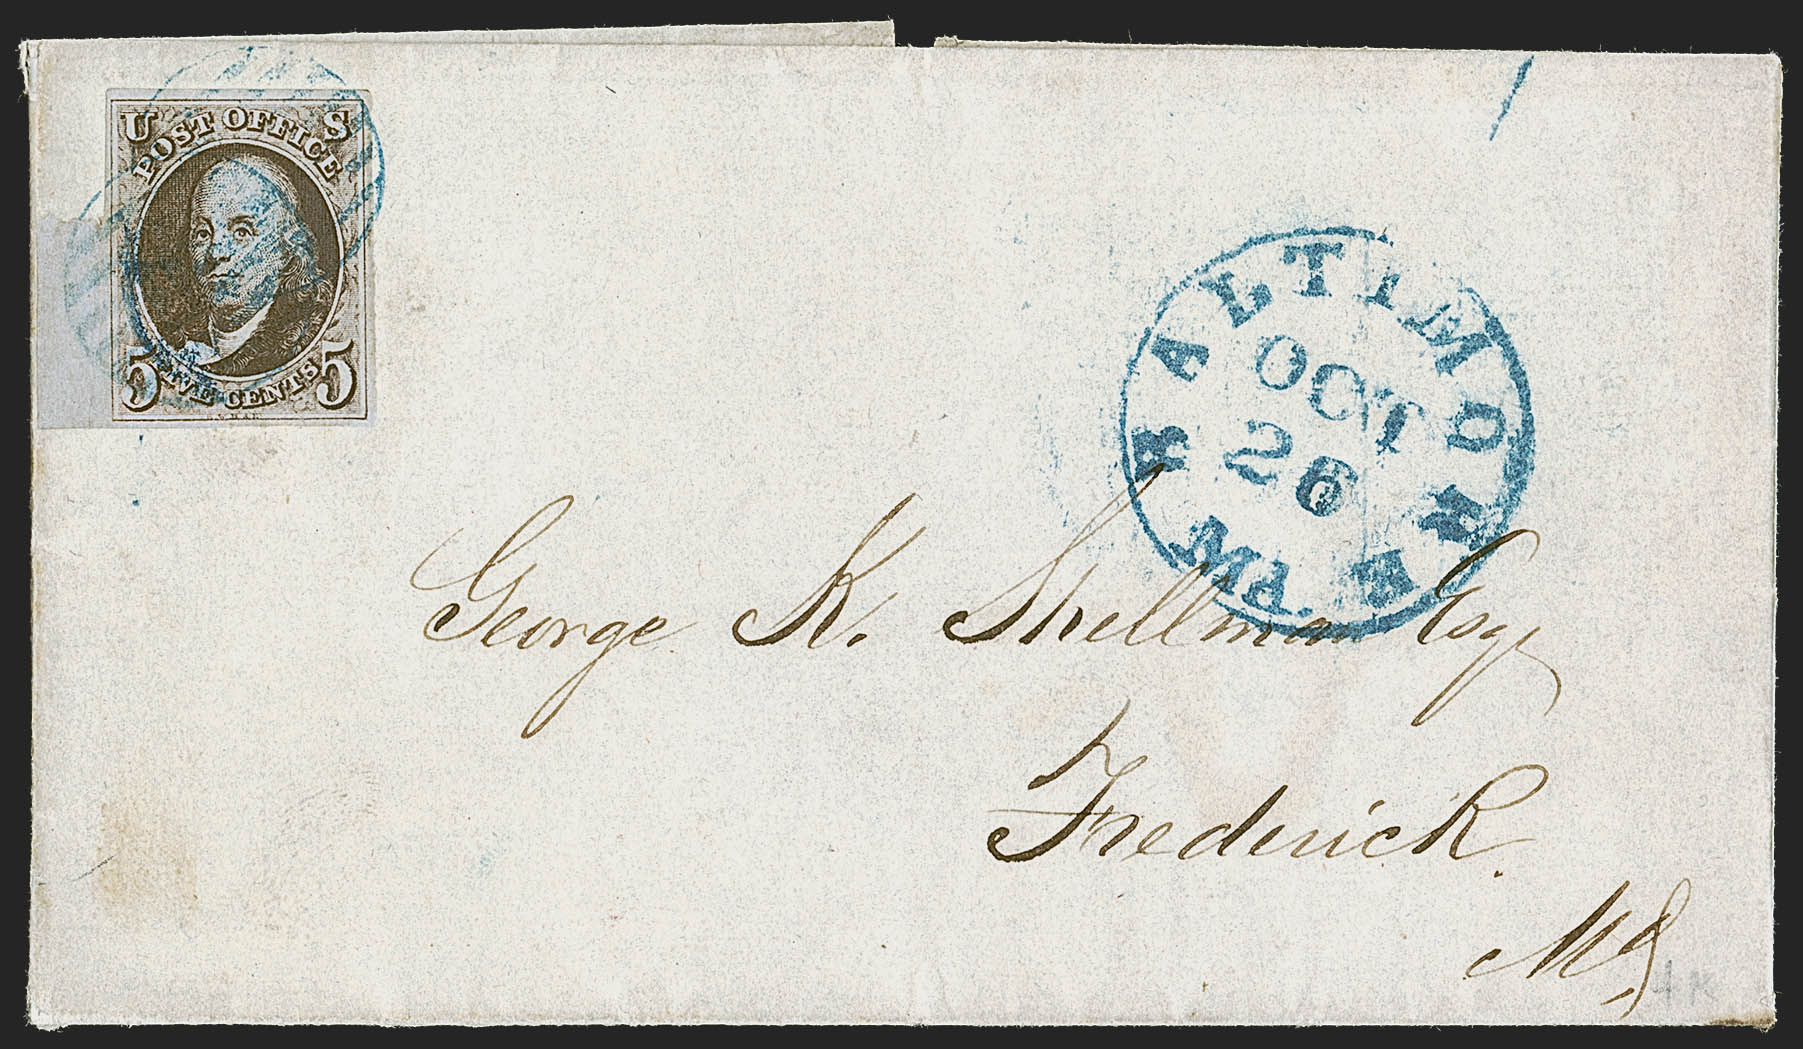 U S
POST OFFICE
5 FIVE CENTS 5
R.W.H.&E.
BALTIMORE Md.
OCT
26
George K. Shellman Esq
Frederick
Md
4 K